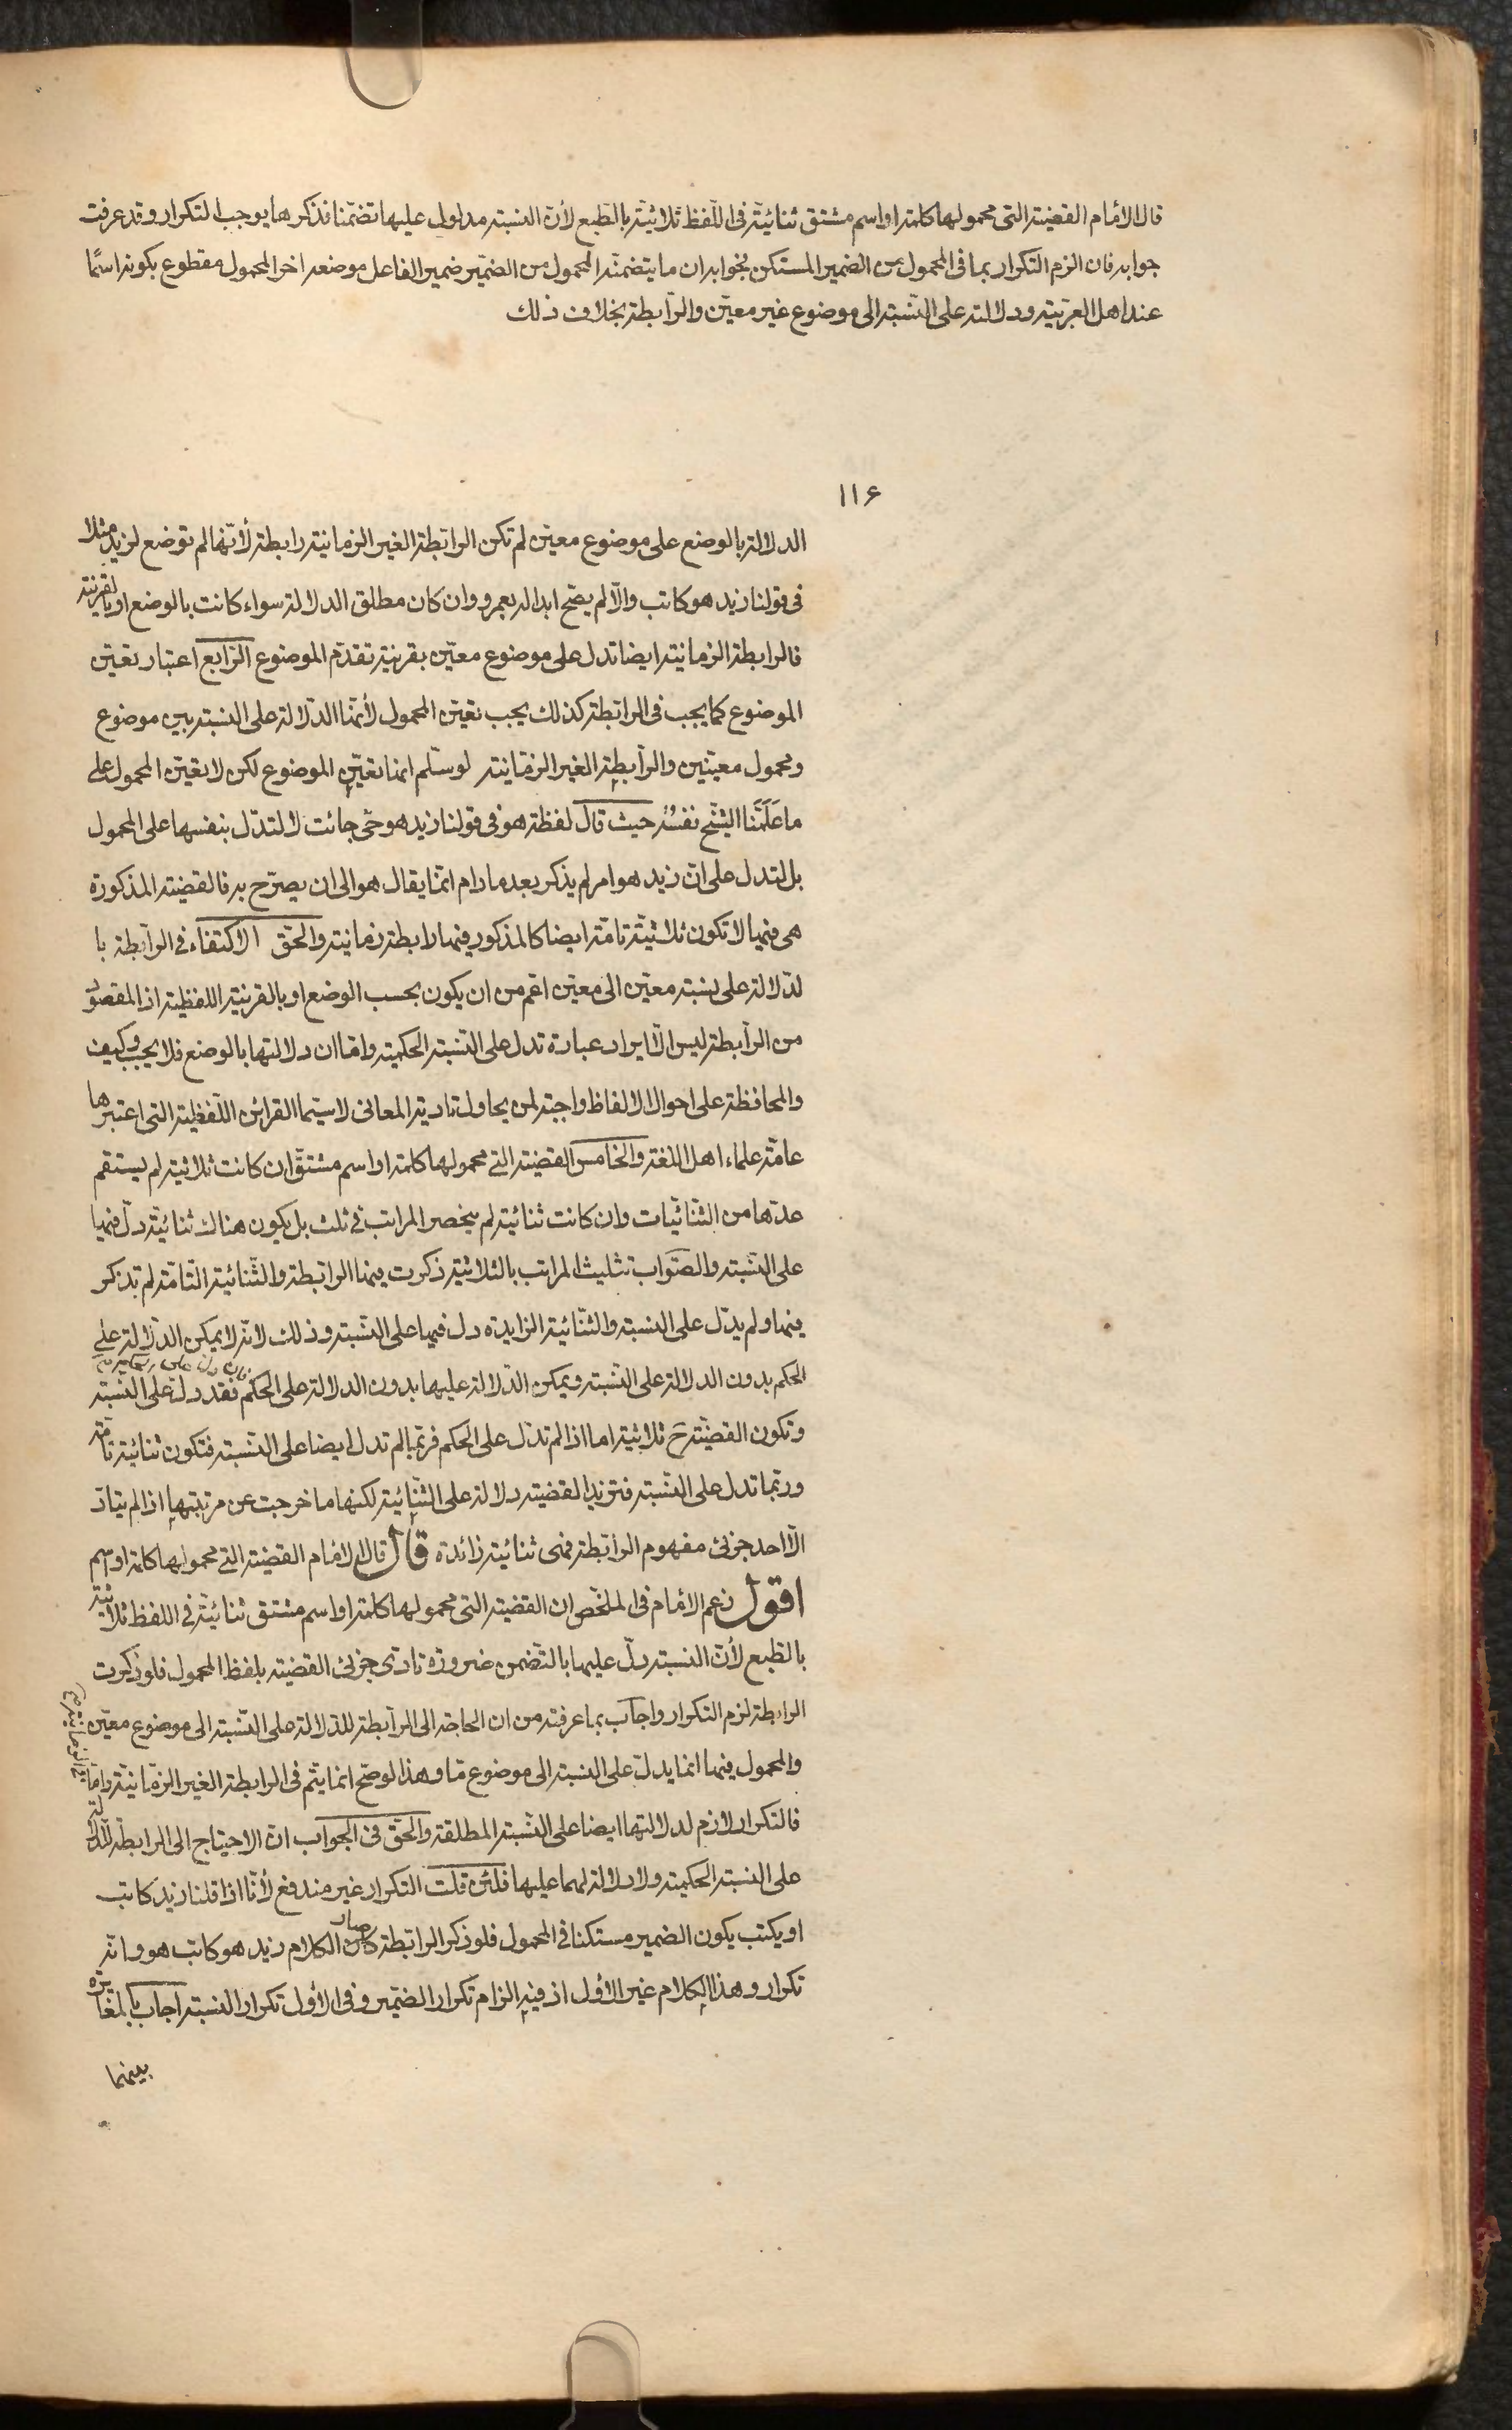 قال الامام القضية التى محمولها كلمة او اسم مشتق ثنائية فى اللفظ ثلاثية بالطبع لأن النسبة مدلول عليها تضمنا فذكرها يوجب التكرار و قد عرفت
جوابه فان الزم التكرار بما فى المحمول من الضمير المستكن فجوابه ان ما يتضمنه المحمول من الضمير ضمير الفاعل موضعه اخر المحمول مقطوع بكونه اسما
عند اهل العربية ودلالته على النسبة الى موضوع غير معين والرابطة بخلاف ذلك
١١۶
الدلالة بالوضع على موضوع معين لم تكن الرابطة الغير الزمانية رابطة لأنها لم توضع لزيد مثلا
فى قولنا زيد هو كاتب والا لم يصح ابداله بعمرو وان كان مطلق الدلالة سواء كانت بالوضع او بالقرينة
فالرابطة الزمانية ايضا تدل على موضوع معين بقرينة تقدم الموضوع الرابع اعتبار تعين
الموضوع كما يجب فى الرابطة كذلك يجب تعين المحمول لأنها الدلالة على النسبة بين موضوع
ومحمول معينين والرابطة الغير الزمانية لو سلم انها تعين الموضوع لكن لا تعين المحمول على
ما علمنا الشيخ نفسه حيث قال لفظة هو فى قولنا زيد هو حى جائت لا لتدل بنفسها على المحمول
بل لتدل على ان زيد هو امر لم يذكر بعد مادام انما يقال هو الى ان يصرح به فالقضية المذكورة
هى فيها لا تكون ثلاثية تامة ايضا كالمذكور فيها رابطة زمانية والحق الاكتفاء فى الرابطة با
لدلالة على نسبة معين الى معين اعم من ان يكون بحسب الوضع او بالقرينة اللفظية اذ المقصود
من الرابطة ليس الا ايراد عبارة تدل على النسبة الحكمية واما ان دلالتها بالوضع فلا يجب وكيف
والمحافظة على احوال الالفاظ واجبة لمن يحاول تادية المعانى لاسيما القرائن اللفظية التى اعتبرها
عامة علماء اهل اللغة والخامس القضية التى محمولها كلمة او اسم مشتق ان كانت ثلاثية لم يستقم
عدها من الثنائيات وان كانت ثنائية لم ينحصر المراتب فى ثلث بل يكون هناك ثنائية دل فيها
على النسبة والصواب تثليث المراتب بالثلاثية ذكرت فيها الرابطة والثنائية التامة لم تذكر
فيها ولم يدل على النسبة والثنائية الزايدة دل فيها على النسبة وذلك لانه لا يمكن الدلالة على
الحكم بدون الدلالة على النسبة ويمكن الدلالة عليها بدون الدلالة على الحكم فان دل على الحكم فقد دلت على النسبة
وتكون القضية ح ثلاثية اما اذا لم تدل على الحكم فربما لم تدل ايضا على النسبة فتكون ثنائية تامة
وربما تدل على النسبة فتزيد القضية دلالة على الثنائية لكنها ما خرجت عن مرتبتها اذا لم يتاد
الا احد جزئى مفهوم الرابطة فهى ثنائية زائدة قال قال الامام القضية التى محمولها كلمة او اسم
اقول زعم الامام فى الملخص ان القضية التى محمولها كلمة او اسم مشتق ثنائية فى اللفظ ثلاثية
بالطبع لأن النسبة دل عليها بالتضمن ضرورة تادى جزئى القضية بلفظ المحمول فلو ذكرت
الرابطة لزم التكرار واجاب بما عرفته من ان الحاجة الى الرابطة للدلالة على النسبة الى موضوع معين
والمحمول فيها انما يدل على النسبة الى موضوع ما وهذا لو صح انما يتم فى الرابطة الغير الزمانية واما فى الزمانية
فالتكرار لازم لدلالتها ايضا على النسبة المطلقة والحق فى الجواب ان الاحتياج الى الرابطة للدلالة
على النسبة الحكمية ولا دلالة لهما عليها فلئن قلت التكرار غير مندفع لأنا اذا قلنا زيد كاتب
او يكتب يكون الضمير مستكنا فى المحمول فلو ذكر الرابطة كان صار الكلام زيد هو كاتب هو وانه
تكرار وهذا الكلام غير الأول اذ فيه الزام تكرار الضمير وفى الأول تكرار النسبة اجاب بالمغايرة
بينهما